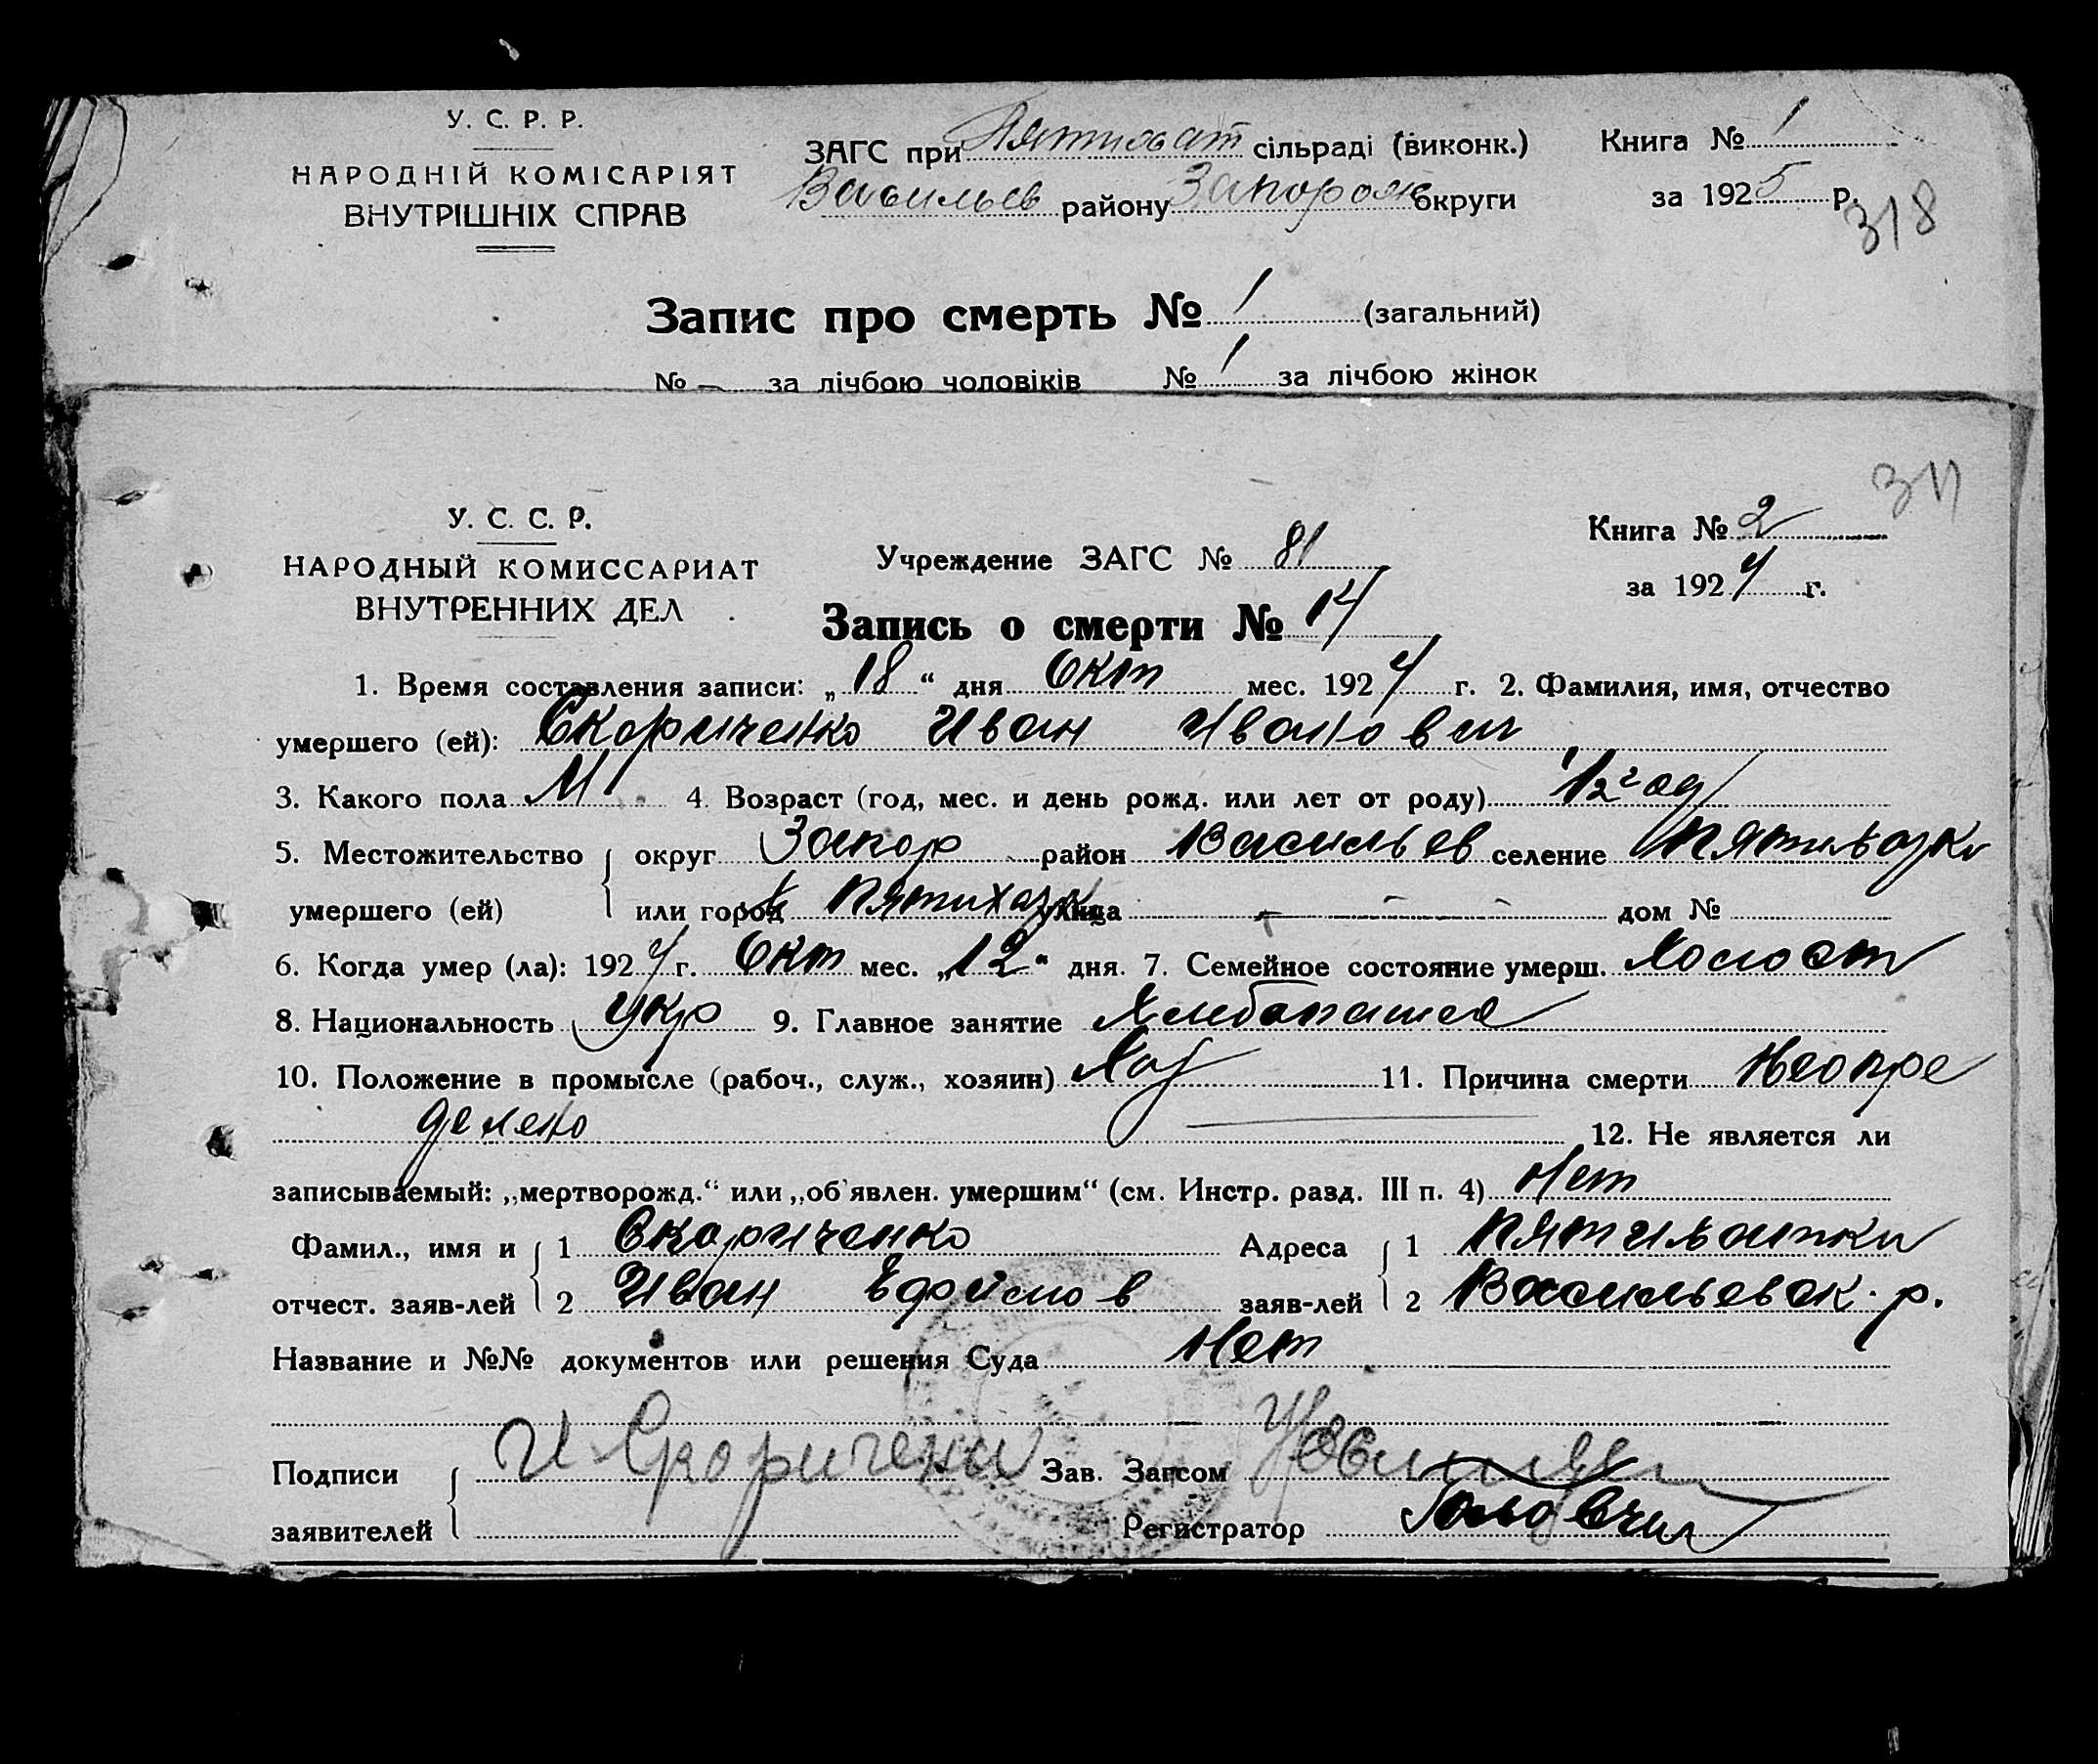 У. С. Р. Р.
НАРОДНІЙ КОМІСАРІЯТ
ВНУТРІШНІХ СПРАВ
ЗАГС при Пятихат сільраді (виконк.)
Васильев району Запорож округи
Книга № 1
за 1925 р.
318
Запис про смерть № 1 (загальний)
№ — за лічбою чоловіків № 1 за лічбою жінок
317
У. С. С. Р.
НАРОДНЫЙ КОМИССАРИАТ
ВНУТРЕННИХ ДЕЛ
Учреждение ЗАГС № 81
Книга № 2
за 1924 г.
Запись о смерти № 14
1. Время составления записи: „18“ дня Окт мес. 1924 г. 2. Фамилия, имя, отчество
умершего (ей): Скориченко Иван Иванович
3. Какого пола М 4. Возраст (год, мес. и день рожд. или лет от роду)
5. Местожительство округ Запор район Васильев селение
умершего (ей) или город улица — дом №
6. Когда умер (ла): 1924 г. Окт мес. „12“ дня. 7. Семейное состояние умерш. Холост
8. Национальность укр 9. Главное занятие Хлебопашес
10. Положение в промысле (рабоч., служ., хозяин) Хоз 11. Причина смерти Неопре
делено 12. Не является ли
записываемый: „мертворожд.“ или „об'явлен. умершим“ (см. Инстр. разд. III п. 4) Нет
Фамил., имя и 1 Скориченко Адреса 1 Пятихатки
отчест. заяв-лей 2 Иван Ефимов заяв-лей 2 Васильевск. р.
Название и №№ документов или решения Суда Нет
Подписи И Скориченко Зав. Загсом
заявителей Регистратор